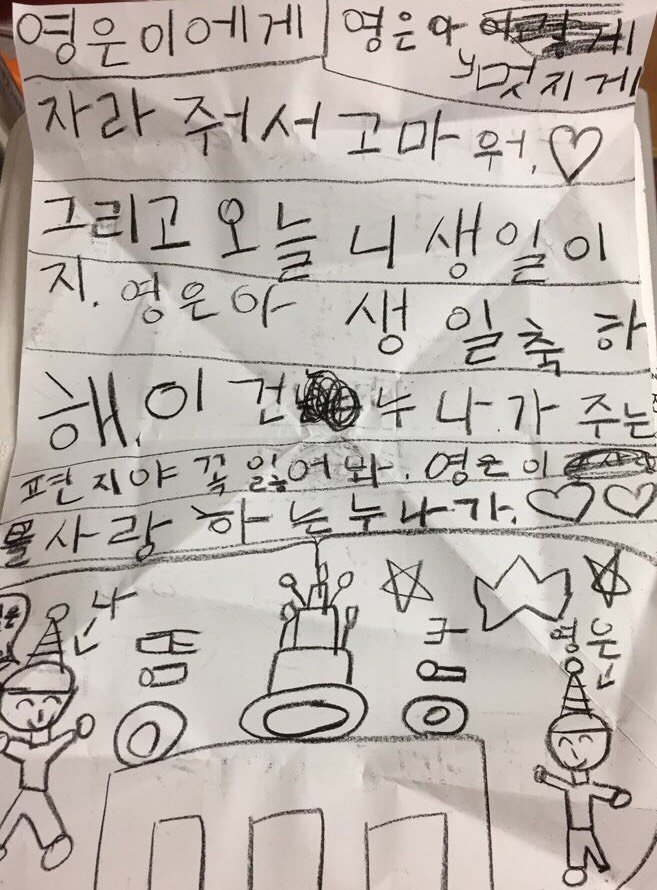 영은이에게
영은아
멋지게
자라 줘서 고마 워.
그리고 오늘 니 생일이
지. 영은아 생일축하
해. 이건 누나가 주는
편지야 꼭 읽어 봐. 영은이
를사랑하는누나가.
나
영은